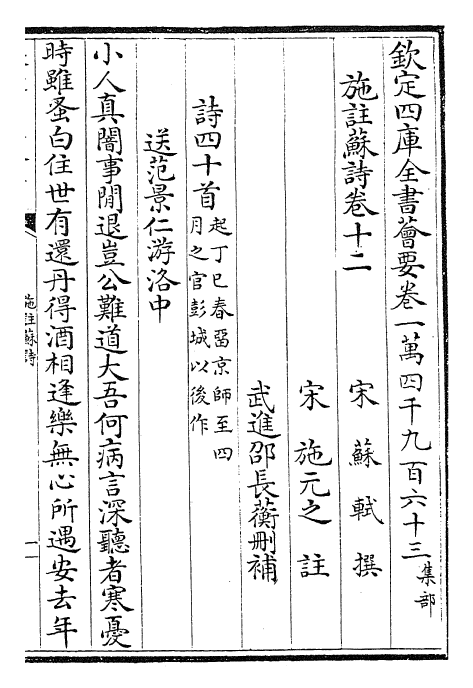 欽定四庫全書薈要卷一萬四千九百六十三集部
施註蘇詩卷十二
宋蘇軾撰
宋施元之註
武進邵長蘅刪補
詩四十首起丁巳春留京師至四
月之官彭城以後作
送范景仁游洛中
小人真闇事閒退豈公難道大吾何病言深聽者寒憂
時雖蚤白住世有還丹得酒相逢樂無心所遇安去年
施註蘇詩
一